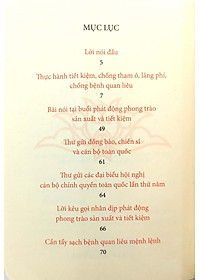 MỤC LỤC
Lời nói đầu
5
Thực hành tiết kiệm, chống tham ô, lãng phí,
chống bệnh quan liêu
7
Bài nói tại buổi phát động phong trào
sản xuất và tiết kiệm
49
Thư gửi đồng bào, chiến sĩ
và cán bộ toàn quốc
61
Thư gửi các đại biểu hội nghị
cán bộ chính quyền toàn quốc lần thứ năm
64
Lời kêu gọi nhân dịp phát động
phong trào sản xuất và tiết kiệm
66
Cần tẩy sạch bệnh quan liêu mệnh lệnh
70